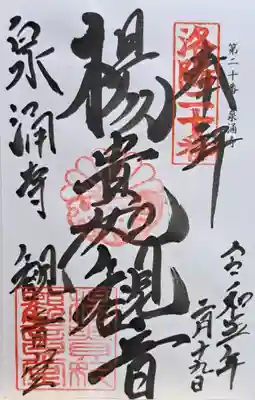 第二十番 泉涌寺
奉拝
洛陽二十番
楊貴妃観音
泉涌寺 観音堂
令和五年
二月十九日